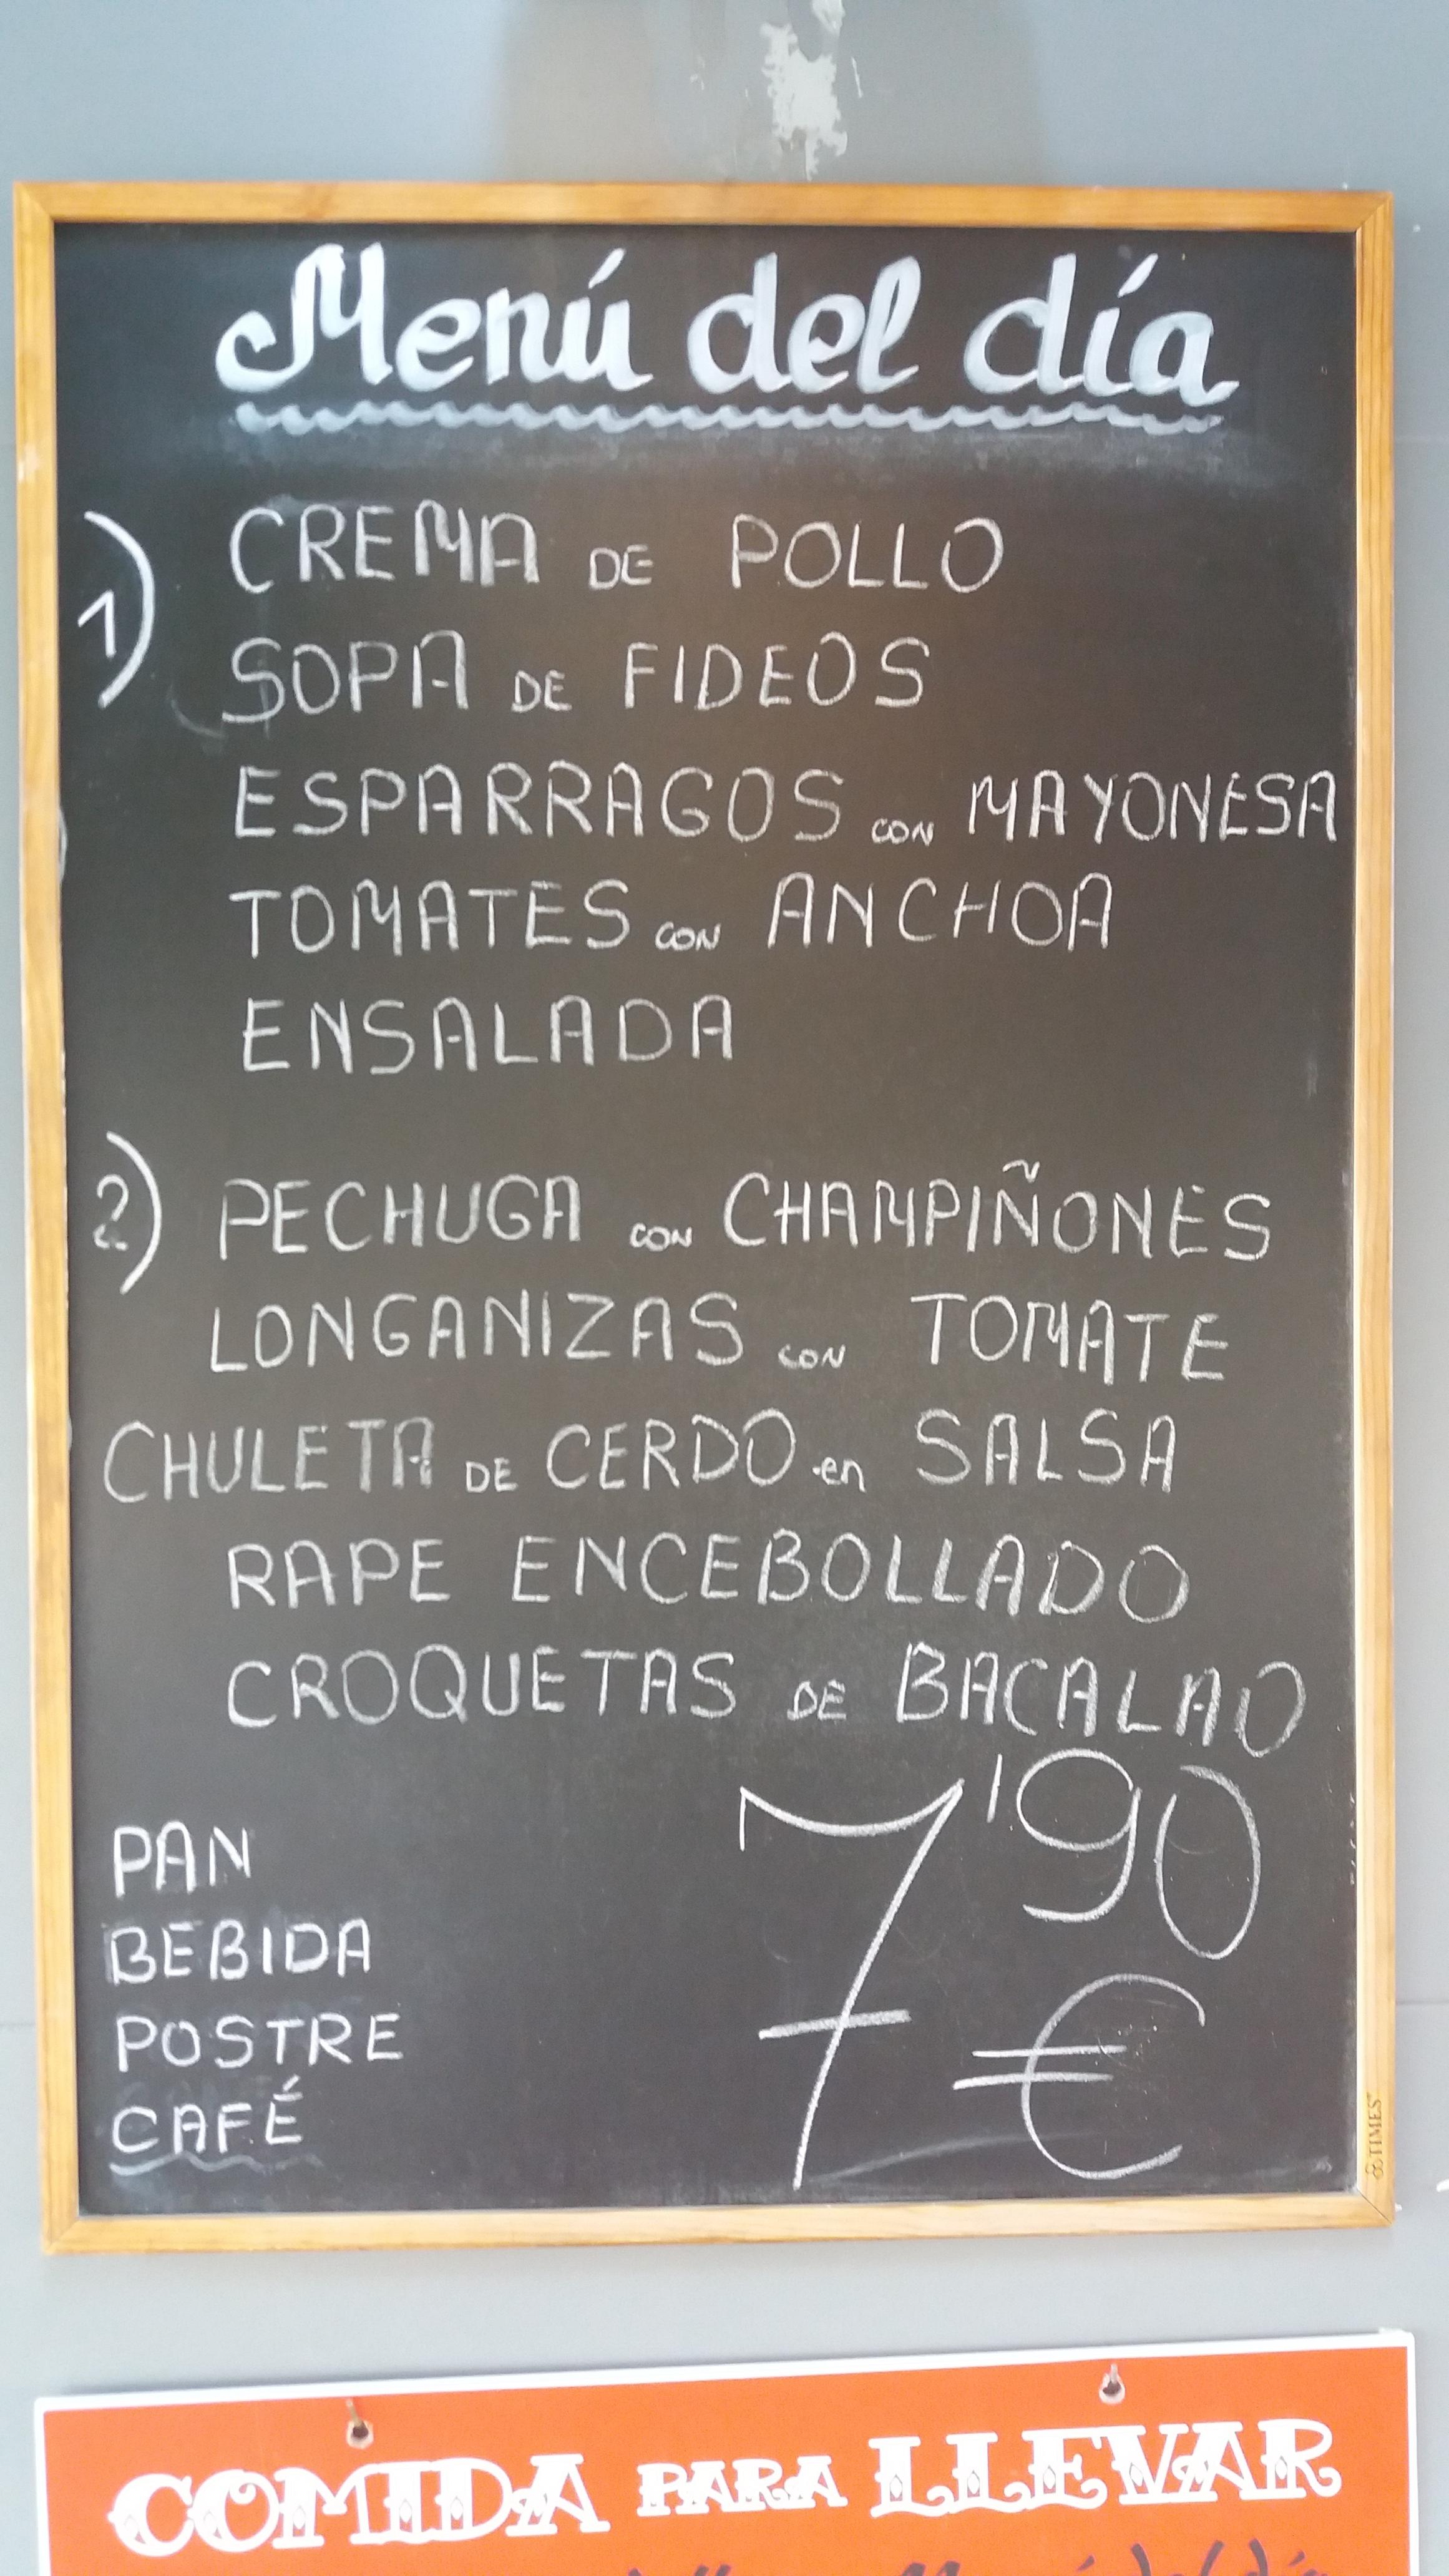 Menú del día
1) CREMA DE POLLO
SOPA DE FIDEOS
ESPARRAGOS CON MAYONESA
TOMATES CON ANCHOA
ENSALADA
2) PECHUGA CON CHAMPIÑONES
LONGANIZAS CON TOMATE
CHULETA DE CERDO en SALSA
RAPE ENCEBOLLADO
CROQUETAS DE BACALAO
7'90 €
PAN
BEBIDA
POSTRE
CAFÉ
TIMES
COMIDA PARA LLEVAR
Menú del día